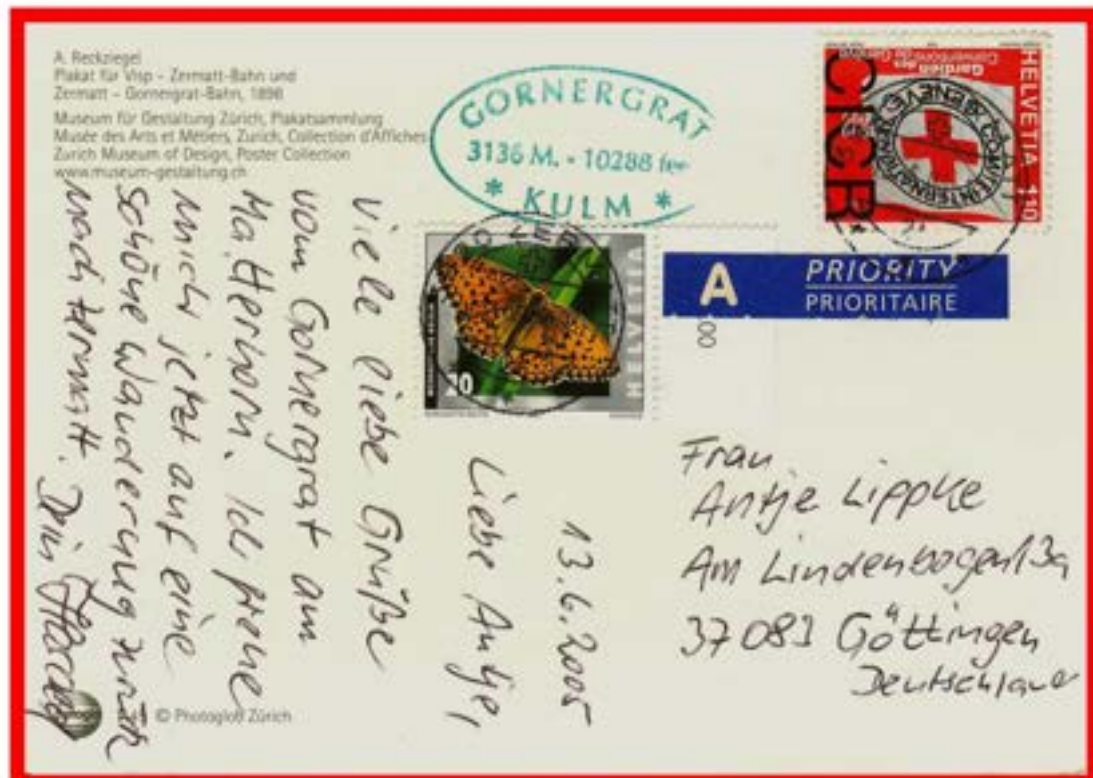 A. Reckziegel
Plakat für Visp – Zermatt-Bahn und
Zermatt – Gornergrat-Bahn, 1898
Museum für Gestaltung Zürich, Plakatsammlung
Musée des Arts et Métiers, Zurich, Collection d'Affiches
Zurich Museum of Design, Poster Collection
www.museum-gestaltung.ch
GORNERGRAT
3136 M. - 10288 fee
* KULM *
HELVETIA 110
Gardien des
Conventions de Genève
CICR
COMITE INTERNATIONAL GENEVE
A
PRIORITY
PRIORITAIRE
00
HELVETIA
10
13.6.2005
Liebe Antje,
viele liebe Grüße
vom Gornergrat am
Matterhorn. Ich freue
mich jetzt auf eine
schöne Wanderung zurück
nach Zermatt. Dein
Frau
Antje Lippke
Am Lindenbogen 13a
37083 Göttingen
Deutschland
© Photoglob Zürich